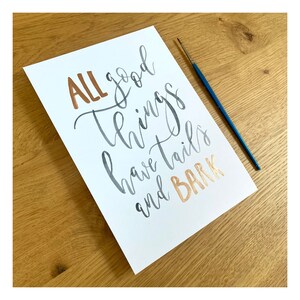 ALL good
things
have tails
and BARK